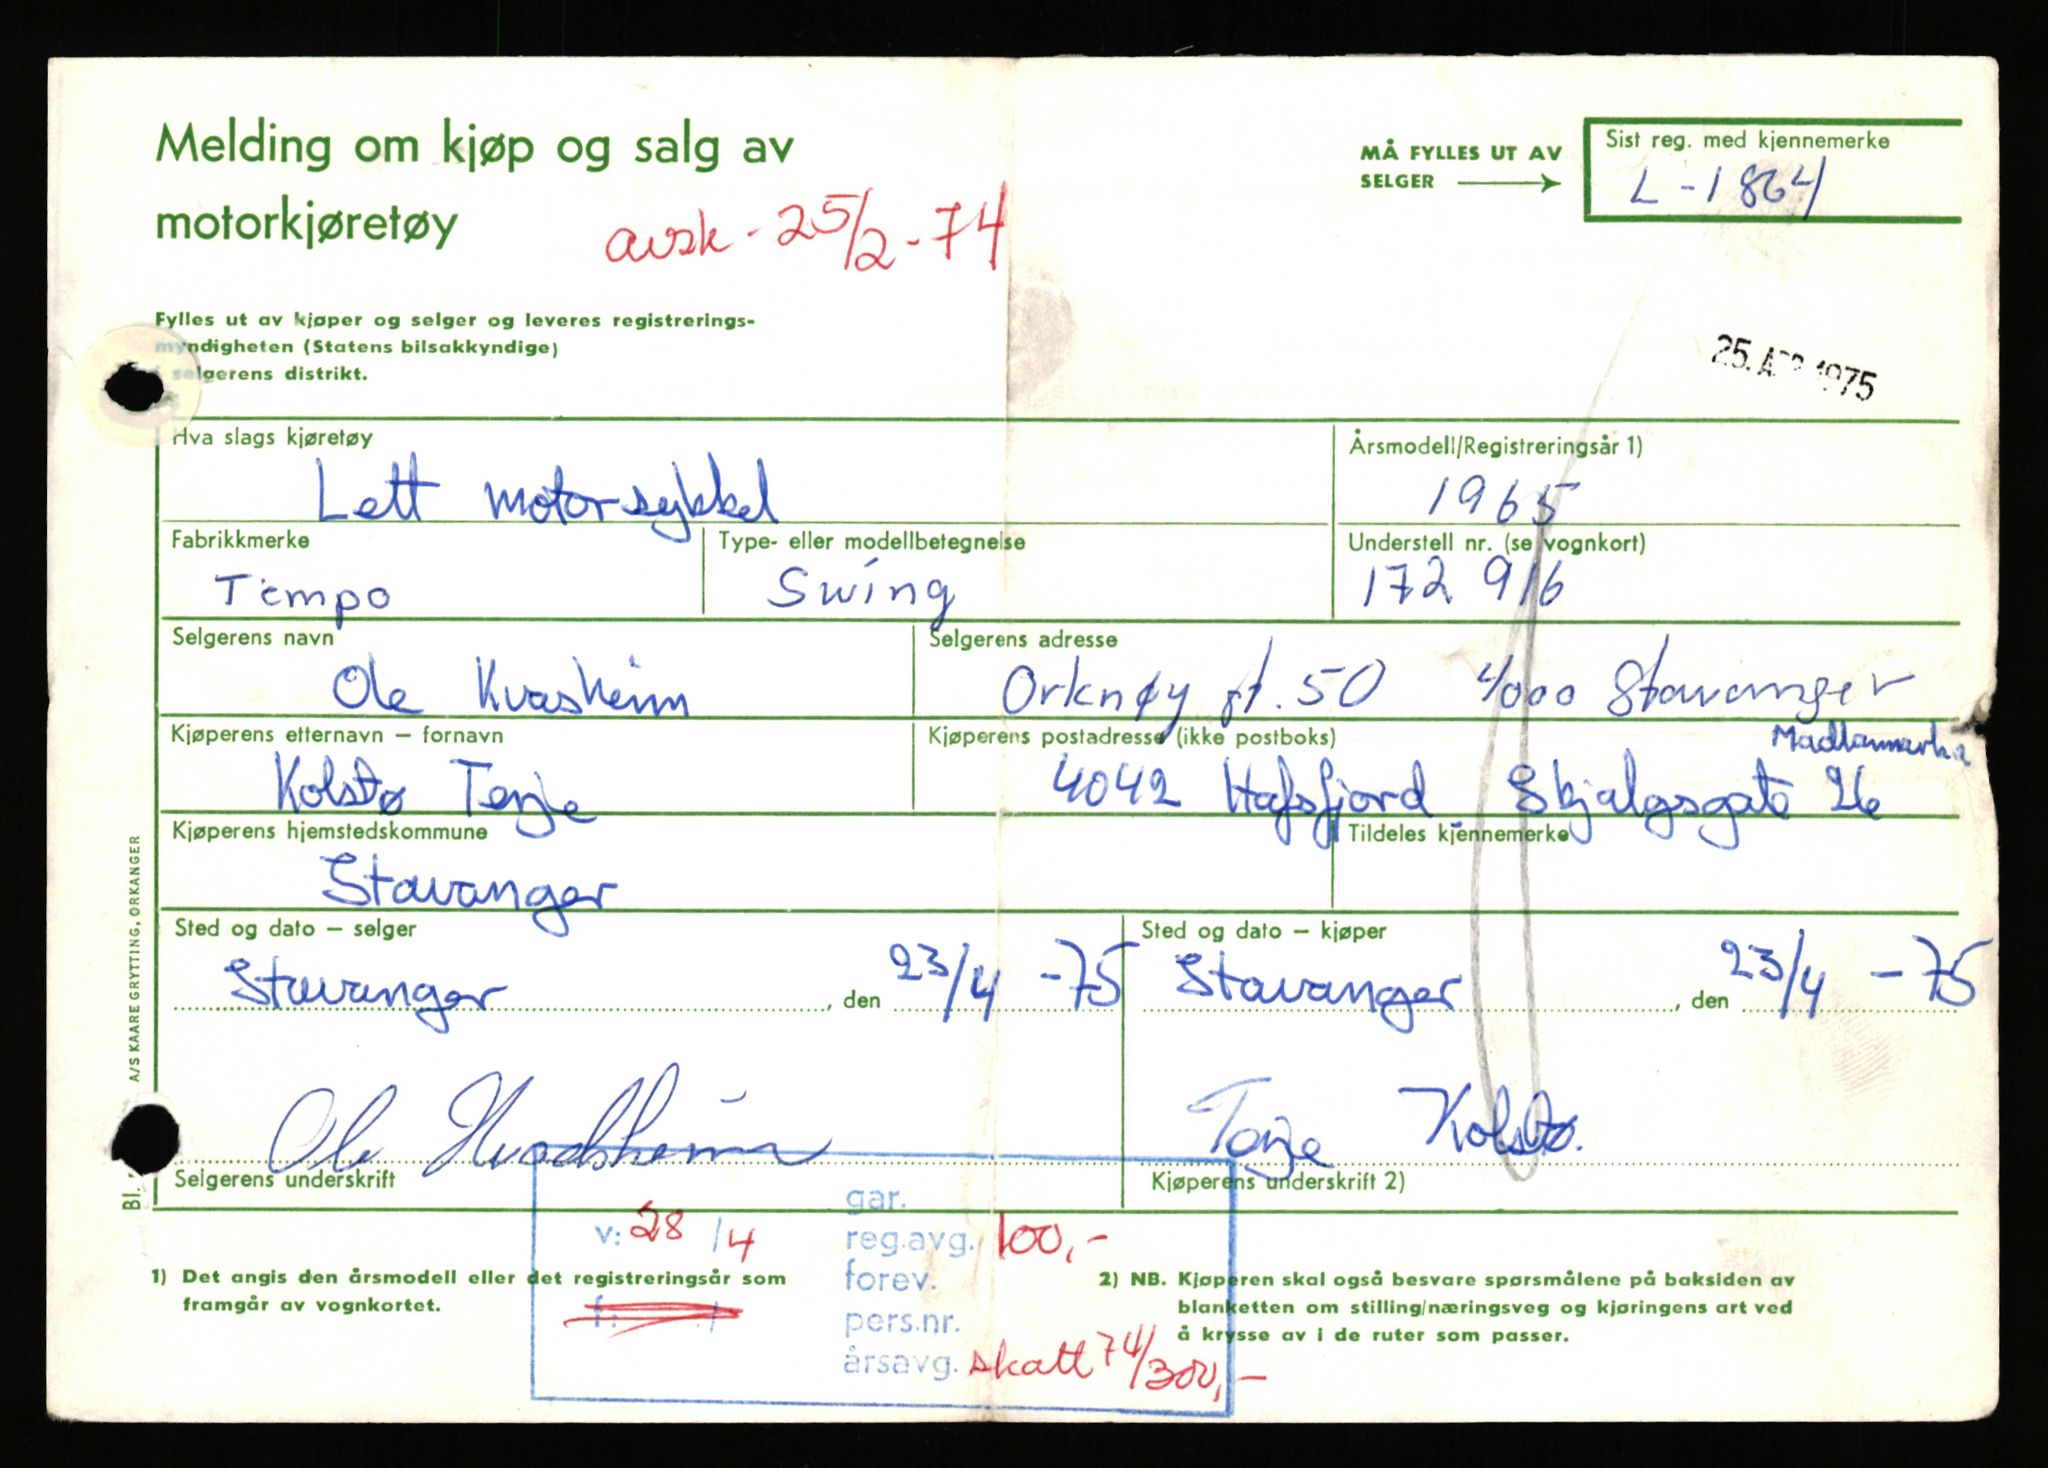 Melding om kjøp og salg av
motorkjøretøy
avsk - 25/2 - 74
MÅ FYLLES UT AV
SELGER
Sist reg. med kjennemerke
L - 1864
Fylles ut av kjøper og selger og leveres registrerings-
myndigheten (Statens bilsakkyndige)
i selgerens distrikt.
25. 1975
Hva slags kjøretøy
Lett motorsykkel
Årsmodell/Registreringsår 1)
1965
Fabrikkmerke
Tempo
Type- eller modellbetegnelse
Swing
Understell nr. (se vognkort)
172 916
Selgerens navn
Ole Kvasheim
Selgerens adresse
Orknøy gt. 50 4000 Stavanger
Kjøperens etternavn – fornavn
Kolstø Terje
Kjøperens postadresse (ikke postboks)
Madlamarka
4042 Hafsfjord Skjalgsgate 26
Kjøperens hjemstedskommune
Stavanger
Tildeles kjennemerke
Sted og dato – selger
Stavanger, den 23/4 - 75
Sted og dato – kjøper
Stavanger, den 23/4 - 75
Ole
Selgerens underskrift
Terje Kolstø.
Kjøperens underskrift 2)
Bl.
A/S KAARE GRYTTING, ORKANGER
gar.
v: 28/4
reg.avg. 100,-
forev.
f: /
pers.nr.
årsavg. skatt 74/300,-
1) Det angis den årsmodell eller det registreringsår som
framgår av vognkortet.
2) NB. Kjøperen skal også besvare spørsmålene på baksiden av
blanketten om stilling/næringsveg og kjøringens art ved
å krysse av i de ruter som passer.